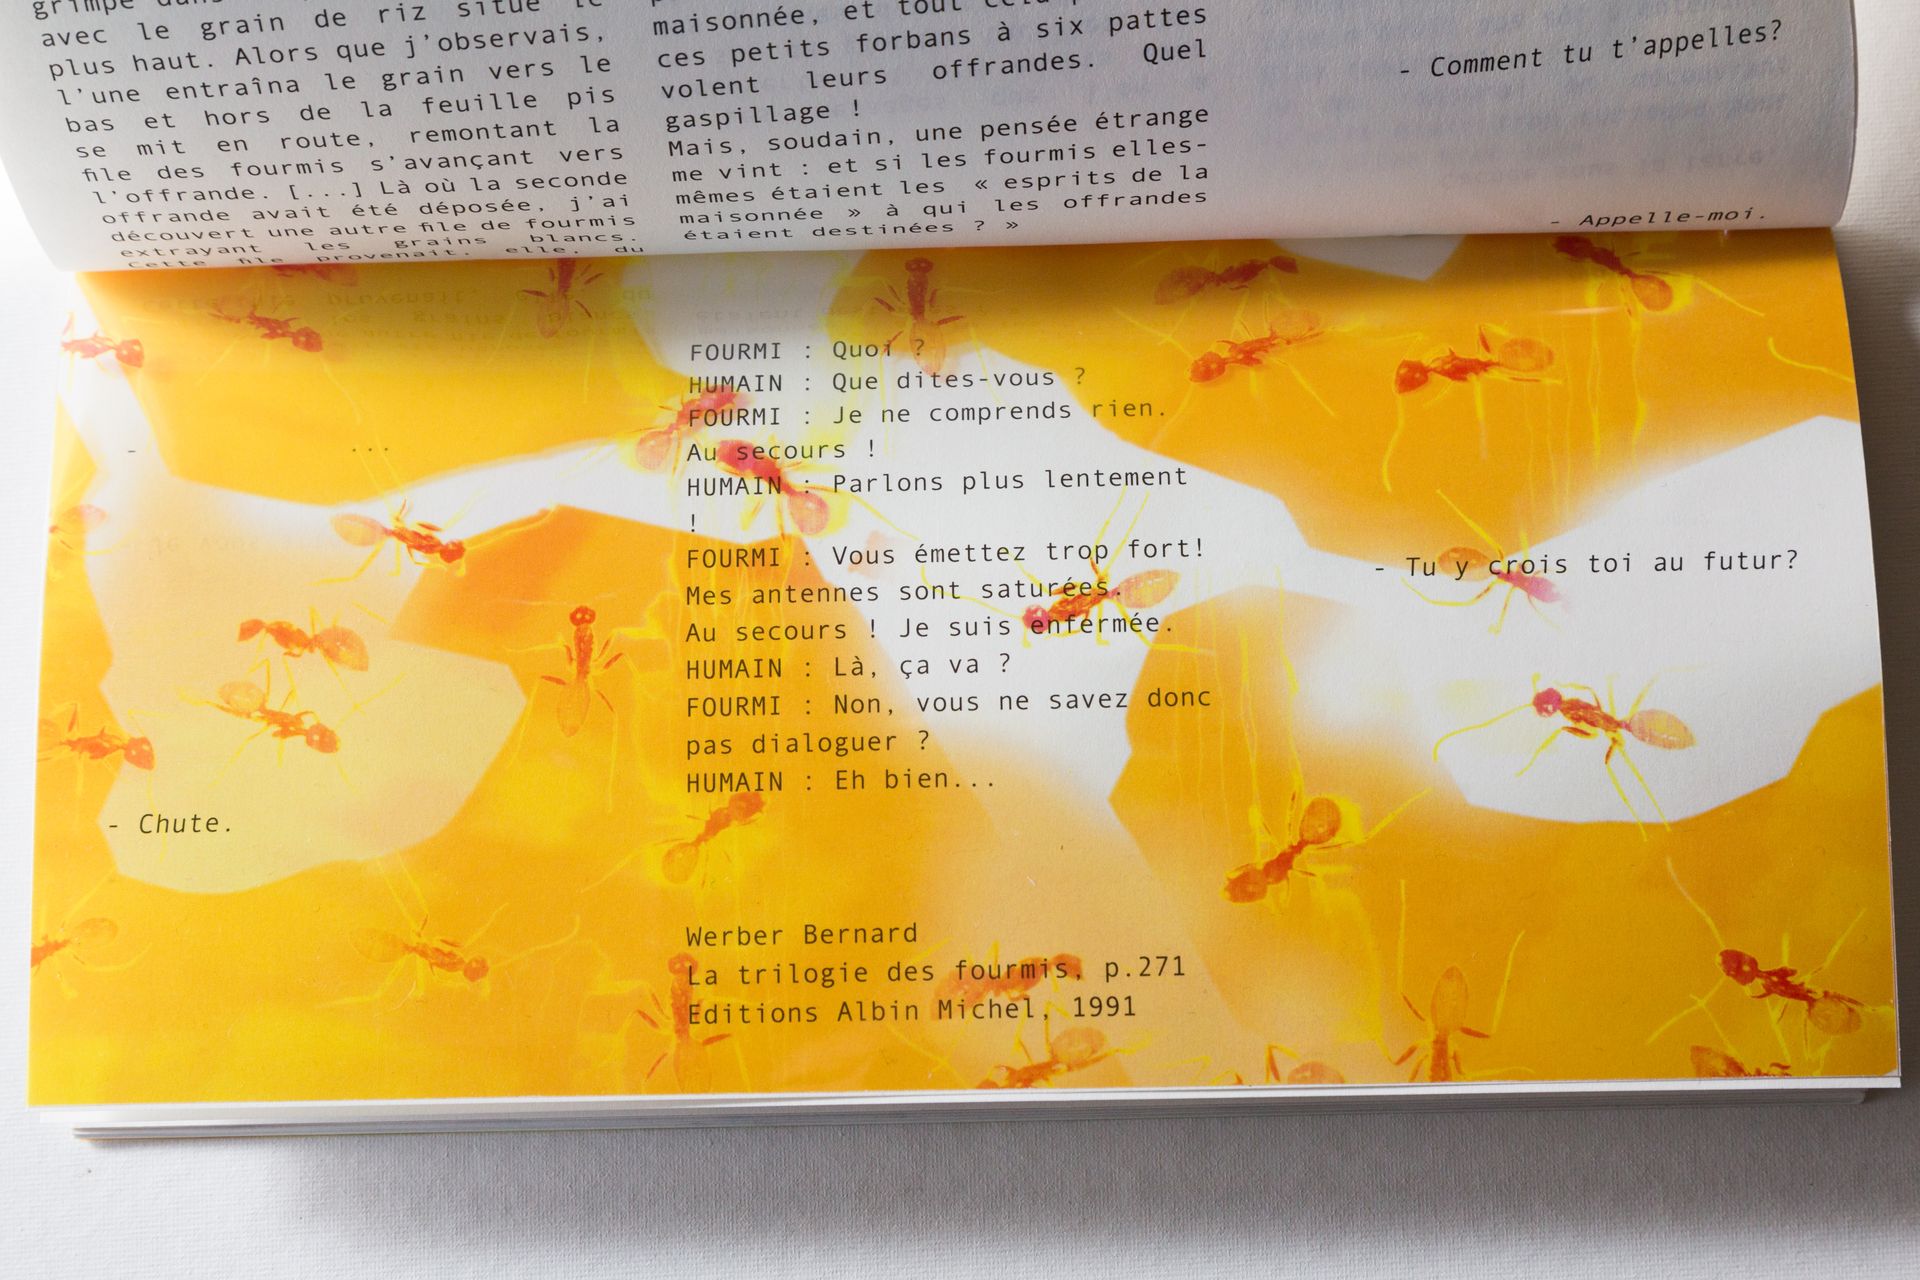 avec le grain de riz situé le
plus haut. Alors que j'observais,
l'une entraîna le grain vers le
bas et hors de la feuille pis
se mit en route, remontant la
file des fourmis s'avançant vers
l'offrande. [...] Là où la seconde
offrande avait été déposée, j'ai
découvert une autre file de fourmis
extrayant les grains blancs.
Cette file provenait, elle, du
maisonnée, et tout
ces petits forbans à six pattes
volent leurs offrandes. Quel
gaspillage !
Mais, soudain, une pensée étrange
me vint : et si les fourmis elles-
mêmes étaient les « esprits de la
maisonnée » à qui les offrandes
étaient destinées ? »
- Comment tu t'appelles?
- Appelle-moi.
- ...
- Chute.
FOURMI : Quoi ?
HUMAIN : Que dites-vous ?
FOURMI : Je ne comprends rien.
Au secours !
HUMAIN : Parlons plus lentement
!
FOURMI : Vous émettez trop fort!
Mes antennes sont saturées.
Au secours ! Je suis enfermée.
HUMAIN : Là, ça va ?
FOURMI : Non, vous ne savez donc
pas dialoguer ?
HUMAIN : Eh bien...
Werber Bernard
La trilogie des fourmis, p.271
Editions Albin Michel, 1991
- Tu y crois toi au futur?